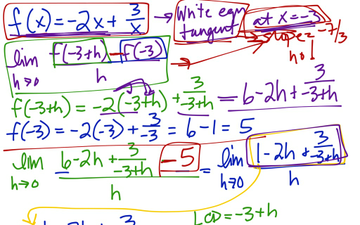 f(x) = -2x + 3/x → Write eqn tangent at x = -3
slope = -7/3
lim h→0 f(-3+h) - f(-3) / h
f(-3+h) = -2(-3+h) + 3/-3+h = 6-2h + 3/-3+h
f(-3) = -2(-3) + 3/-3 = 6-1 = 5
lim h→0 6-2h + 3/-3+h - 5 / h = lim h→0 1-2h + 3/-3+h / h
LCD = -3+h